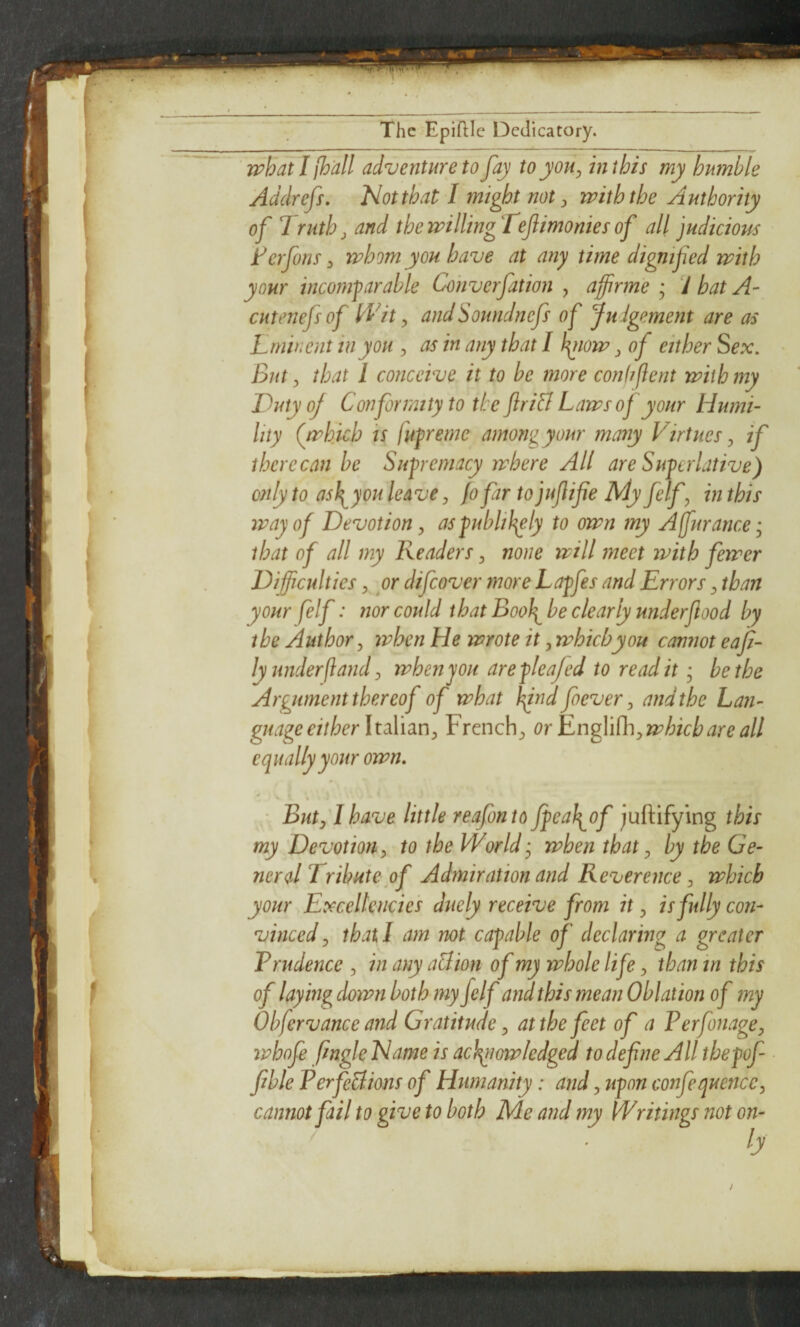 The Epiſtle Dedicatory.
what I ſhall adventure to ſay to you, in this my humble
Addreſs. Not that I might not, with the Authority
of Truth, and the willing Teſtimonies of all judicious
Perſons, whom you have at any time dignified with
your incomparable Converſation, affirme; That A-
cuteneſs of Wit, and Soundneſs of Judgement are as
Eminent in you, as in any that I know, of either Sex.
But, that I conceive it to be more conſiſtent with my
Duty of Conformity to the ſtrict Laws of your Humi-
lity (which is ſupreme among your many Virtues, if
there can be Supremacy where All are Superlative)
only to ask you leave, ſo far to juſtifie My ſelf, in this
way of Devotion, as publikely to own my Aſſurance;
that of all my Readers, none will meet with fewer
Difficulties, or diſcover more Lapſes and Errors, than
your ſelf: nor could that Book be clearly underſtood by
the Author, when He wrote it, which you cannot eaſi-
ly underſtand, when you are pleaſed to read it; be the
Argument thereof of what kind ſoever, and the Lan-
guage either Italian, French, or Engliſh, which are all
equally your own.
But, I have little reaſon to ſpeak of juſtifying this
my Devotion, to the World; when that, by the Ge-
neral Tribute of Admiration and Reverence, which
your Excellencies duely receive from it, is fully con-
vinced, that I am not capable of declaring a greater
Prudence, in any action of my whole life, than in this
of laying down both my ſelf and this mean Oblation of my
Obſervance and Gratitude, at the feet of a Perſonage,
whoſe ſingle Name is acknowledged to define All the poſ-
ſible Perfections of Humanity: and, upon conſequence,
cannot fail to give to both Me and my Writings not on-
ly